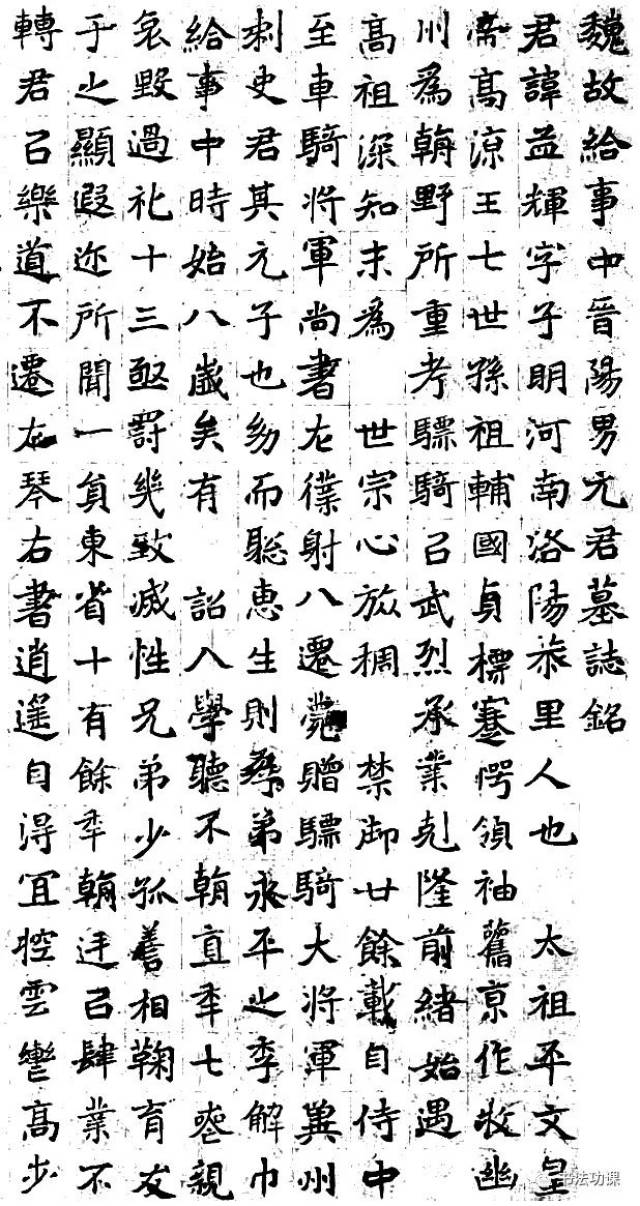 魏故給事中晉陽男元君墓誌銘
君諱孟輝字子明河南洛陽恭里人也 太祖平文皇
帝高涼王七世孫祖輔國貞標謇愕領袖舊京作牧幽
州為朝野所重考驃騎以武烈承業克隆前緒始遇
高祖深知末為 世宗心旅稠 禁御廿餘載自侍中
至車騎將軍尚書左僕射八遷薨贈驃騎大將軍冀州
刺史君其元子也幼而聰惠生則孝弟永平之季解巾
給事中時始八歲矣有 詔入學聽不朝直年七喪親
哀毀過礼十三亟罰幾致滅性兄弟少孤善相鞠育友
于之顯遐迩所聞一員東省十有餘年朝迕已肆業不
轉君以樂道不遷左琴右書逍遙自得冝控雲轡高步
书法功课